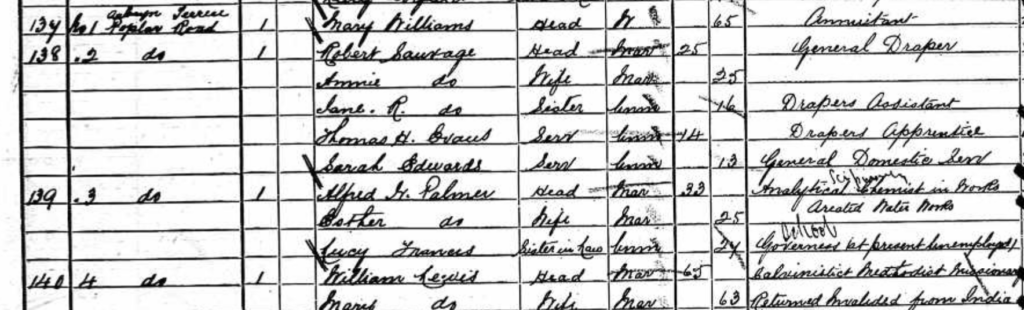 137 No 1 Terrace Poplar Road 1 Mary Williams Head W 65 Annuitant
138 . 2 do 1 Robert Sauvage Head Mar 25 General Draper
Annie do Wife Mar 25
Jane. R. do Sister Unm 16 Drapers Assistant
Thomas H. Evans Serv Unm 14 Drapers Apprentice
Sarah Edwards Serv Unm 13 General Domestic Serv
139 . 3 do 1 Alfred H. Palmer Head Mar 33 Analytical Chemist in Works
Areated Water Works
Esther do Wife Mar 25
School
Lucy Frances Sister in Law Unm 24 Governess (at present unemployed)
140 4 do 1 William Lewis Head Mar 65 Calvinistic Methodist Missionary
Mary do Wife Mar 63 Returned Invalided from India